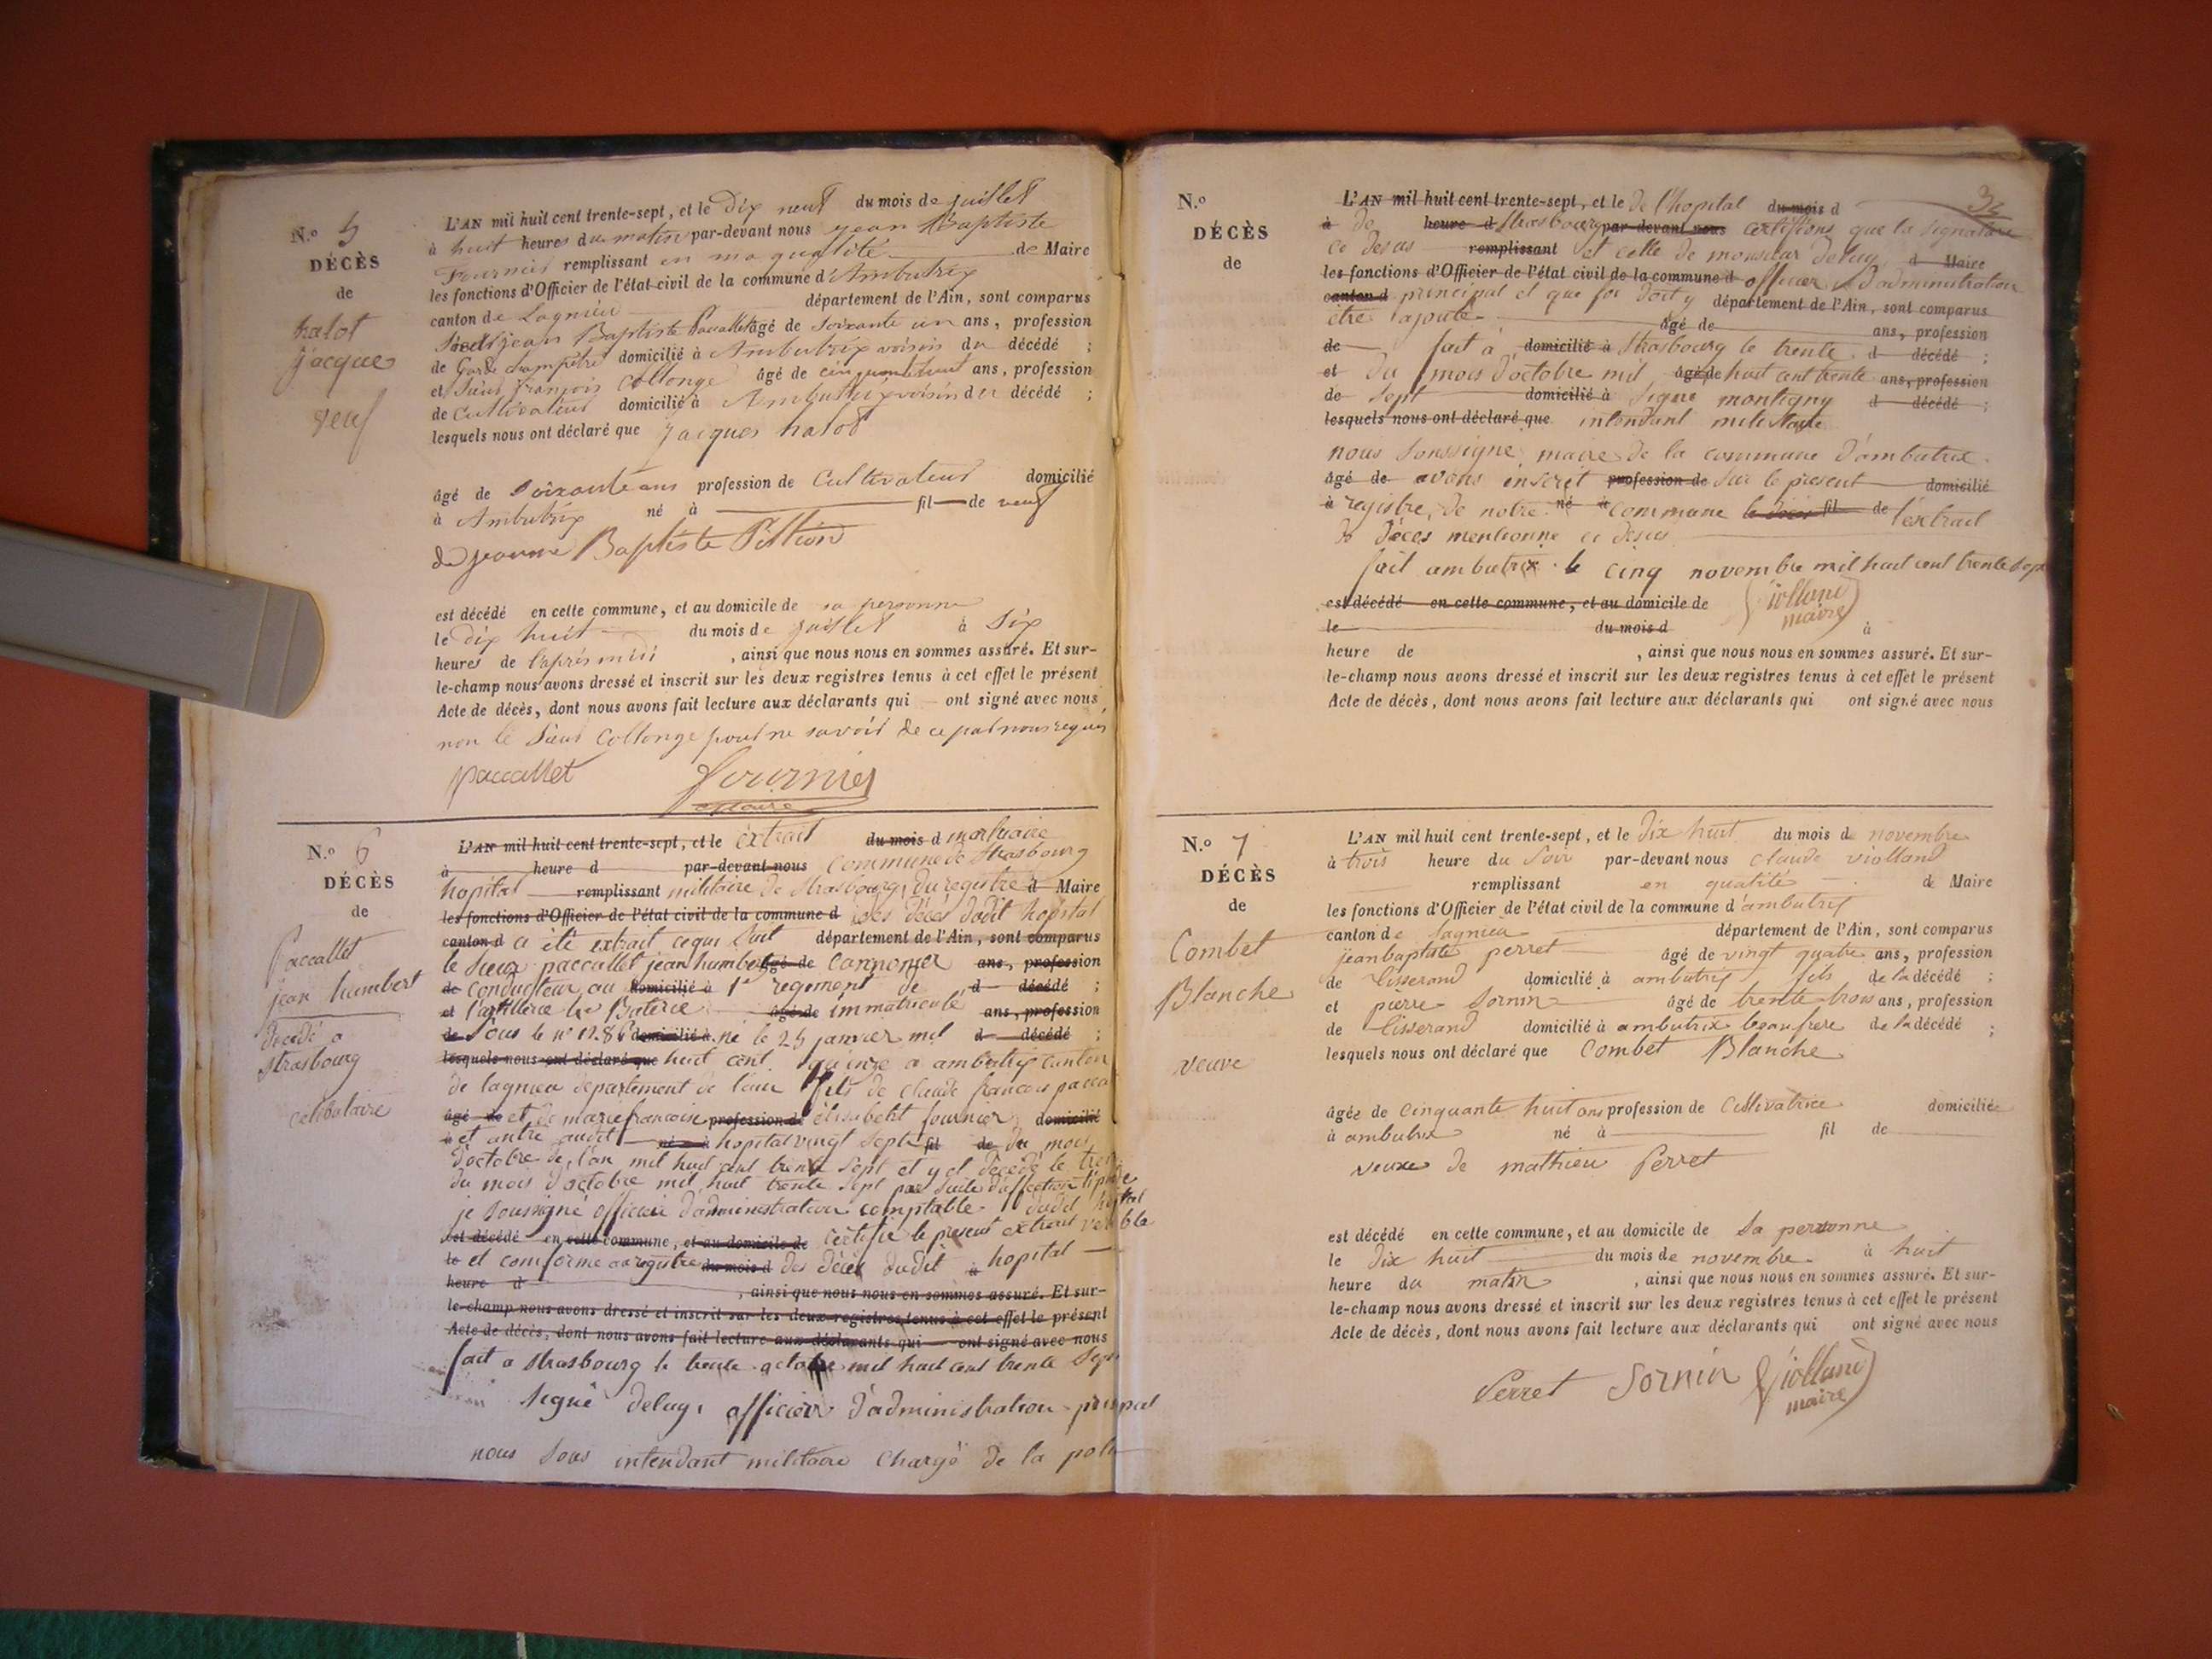 N.o 5
DÉCÈS
de
halot
jacque
veuf
L'AN mil huit cent trente-sept, et le dix neuf du mois de juillet
à huit heures du matin par-devant nous jean Baptiste
Fournier remplissant en ma qualité de Maire
les fonctions d'Officier de l'état civil de la commune d'Ambutrix
canton de Lagnieu département de l'Ain, sont comparus
jean Baptiste Paccallet âgé de soixante un ans, profession
de Garde champêtre domicilié à Ambutrix voisin du décédé ;
et Sieur françois Collonge âgé de cinquante huit ans, profession
de Cultivateur domicilié à Ambutrix voisin du décédé ;
lesquels nous ont déclaré que jacques halot
âgé de soixante ans profession de Cultivateur domicilié
à Ambutrix né à fil de veuf
de jeanne Baptiste Pittion
est décédé en cette commune, et au domicile de sa personne
le dix huit du mois de juillet à six
heures de l'après midi , ainsi que nous nous en sommes assuré. Et sur-
le-champ nous avons dressé et inscrit sur les deux registres tenus à cet effet le présent
Acte de décès, dont nous avons fait lecture aux déclarants qui ont signé avec nous
non le Sieur Collonge pour ne savoir de ce par nous requis
paccallet fournier
maire
N.o 6
DÉCÈS
de
Paccallet
jean humbert
décédé a
strasbourg
celibataire
L'AN mil huit cent trente-sept, et le extrait du mois d mortuaire
à heure d par-devant nous Commune de Strasbourg
hopital remplissant militaire de strasbourg, du registre d Maire
les fonctions d'Officier de l'état civil de la commune d des décés dudit hopital
canton d a été extrait ce qui suit département de l'Ain, sont comparus
le sieur paccallet jean humbert âgé de cannonier ans, profession
de conducteur au domicilié à 1er regiment de d décédé ;
et l'artillerie Baterie âgé de immatriculé ans, profession
de sous le no 1286 domicilié à né le 25 janvier mil d décédé ;
lesquels nous ont déclaré que huit cent quinze a ambutrix canton
de lagnieu departement de l'ain fils de claude francois pacca
âgé de et de marie francoise profession d élisabeht fournier domicilié
à et antré audit né à hopital vingt sept fil de du mois
d'octobre de l'an mil huit cent trente sept et y et décédé le
du mois d'octobre mil huit trente sept par suite d'affection
je soussigné officier d'administration comptable dudit hopital
est décédé en cette commune, et au domicile de certifie le present extrait
le et comforme au registre du mois d des décés dudit à hopital
heure d , ainsi que nous nous en sommes assuré. Et sur-
le-champ nous avons dressé et inscrit sur les deux registres tenus à cet effet le présent
Acte de décès, dont nous avons fait lecture aux déclarants qui ont signé avec nous
fait a strasbourg le trente octobre mil huit cent trente sept
signé delug, officier d'administration
nous sous intendant militaire chargé de la
N.o
DÉCÈS
de
L'AN mil huit cent trente-sept, et le de l'hopital du mois d
à de heure d strasbourg par-devant nous certifions que la signature
ce desus remplissant et cette de monsieur delug d Maire
les fonctions d'Officier de l'état civil de la commune d officier d'administration
canton d principal et que foi doit y département de l'Ain, sont comparus
être ajoute âgé de ans, profession
de fait à domicilié à strasbourg le trente d décédé ;
et du mois d'octobre mil âgé de huit cent trente ans, profession
de sept domicilié à signé montigny d décédé ;
lesquels nous ont déclaré que intendant militaire
nous soussigné maire de la commune d'ambutrix
âgé de avons inscrit profession de sur le present domicilié
à registre de notre né à commune fil de l'extrait
de décés mentionné ci desus
fait ambutrix le cinq novembre mil huit cent trente sept
est décédé en cette commune, et au domicile de Violland
maire
le du mois d à
heure de , ainsi que nous nous en sommes assuré. Et sur-
le-champ nous avons dressé et inscrit sur les deux registres tenus à cet effet le présent
Acte de décès, dont nous avons fait lecture aux déclarants qui ont signé avec nous
N.o 7
DÉCÈS
de
Combet
Blanche
veuve
L'AN mil huit cent trente-sept, et le dix huit du mois de novembre
à trois heure du soir par-devant nous claude violland
remplissant en qualité de Maire
les fonctions d'Officier de l'état civil de la commune d'ambutrix
canton de lagnieu département de l'Ain, sont comparus
jean baptiste perret âgé de vingt quatre ans, profession
de tisserand domicilié à ambutrix fils de la décédé ;
et pierre sornin âgé de trente trois ans, profession
de tisserand domicilié à ambutrix beaufrere de la décédé ;
lesquels nous ont déclaré que Combet Blanche
âgée de cinquante huit ans profession de Cultivatrice domiciliée
à ambutrix né à fil de
veuve de mathieu Perret
est décédé en cette commune, et au domicile de sa personne
le dix huit du mois de novembre à huit
heure du matin , ainsi que nous nous en sommes assuré. Et sur-
le-champ nous avons dressé et inscrit sur les deux registres tenus à cet effet le présent
Acte de décès, dont nous avons fait lecture aux déclarants qui ont signé avec nous
Perret Sornin Violland
maire